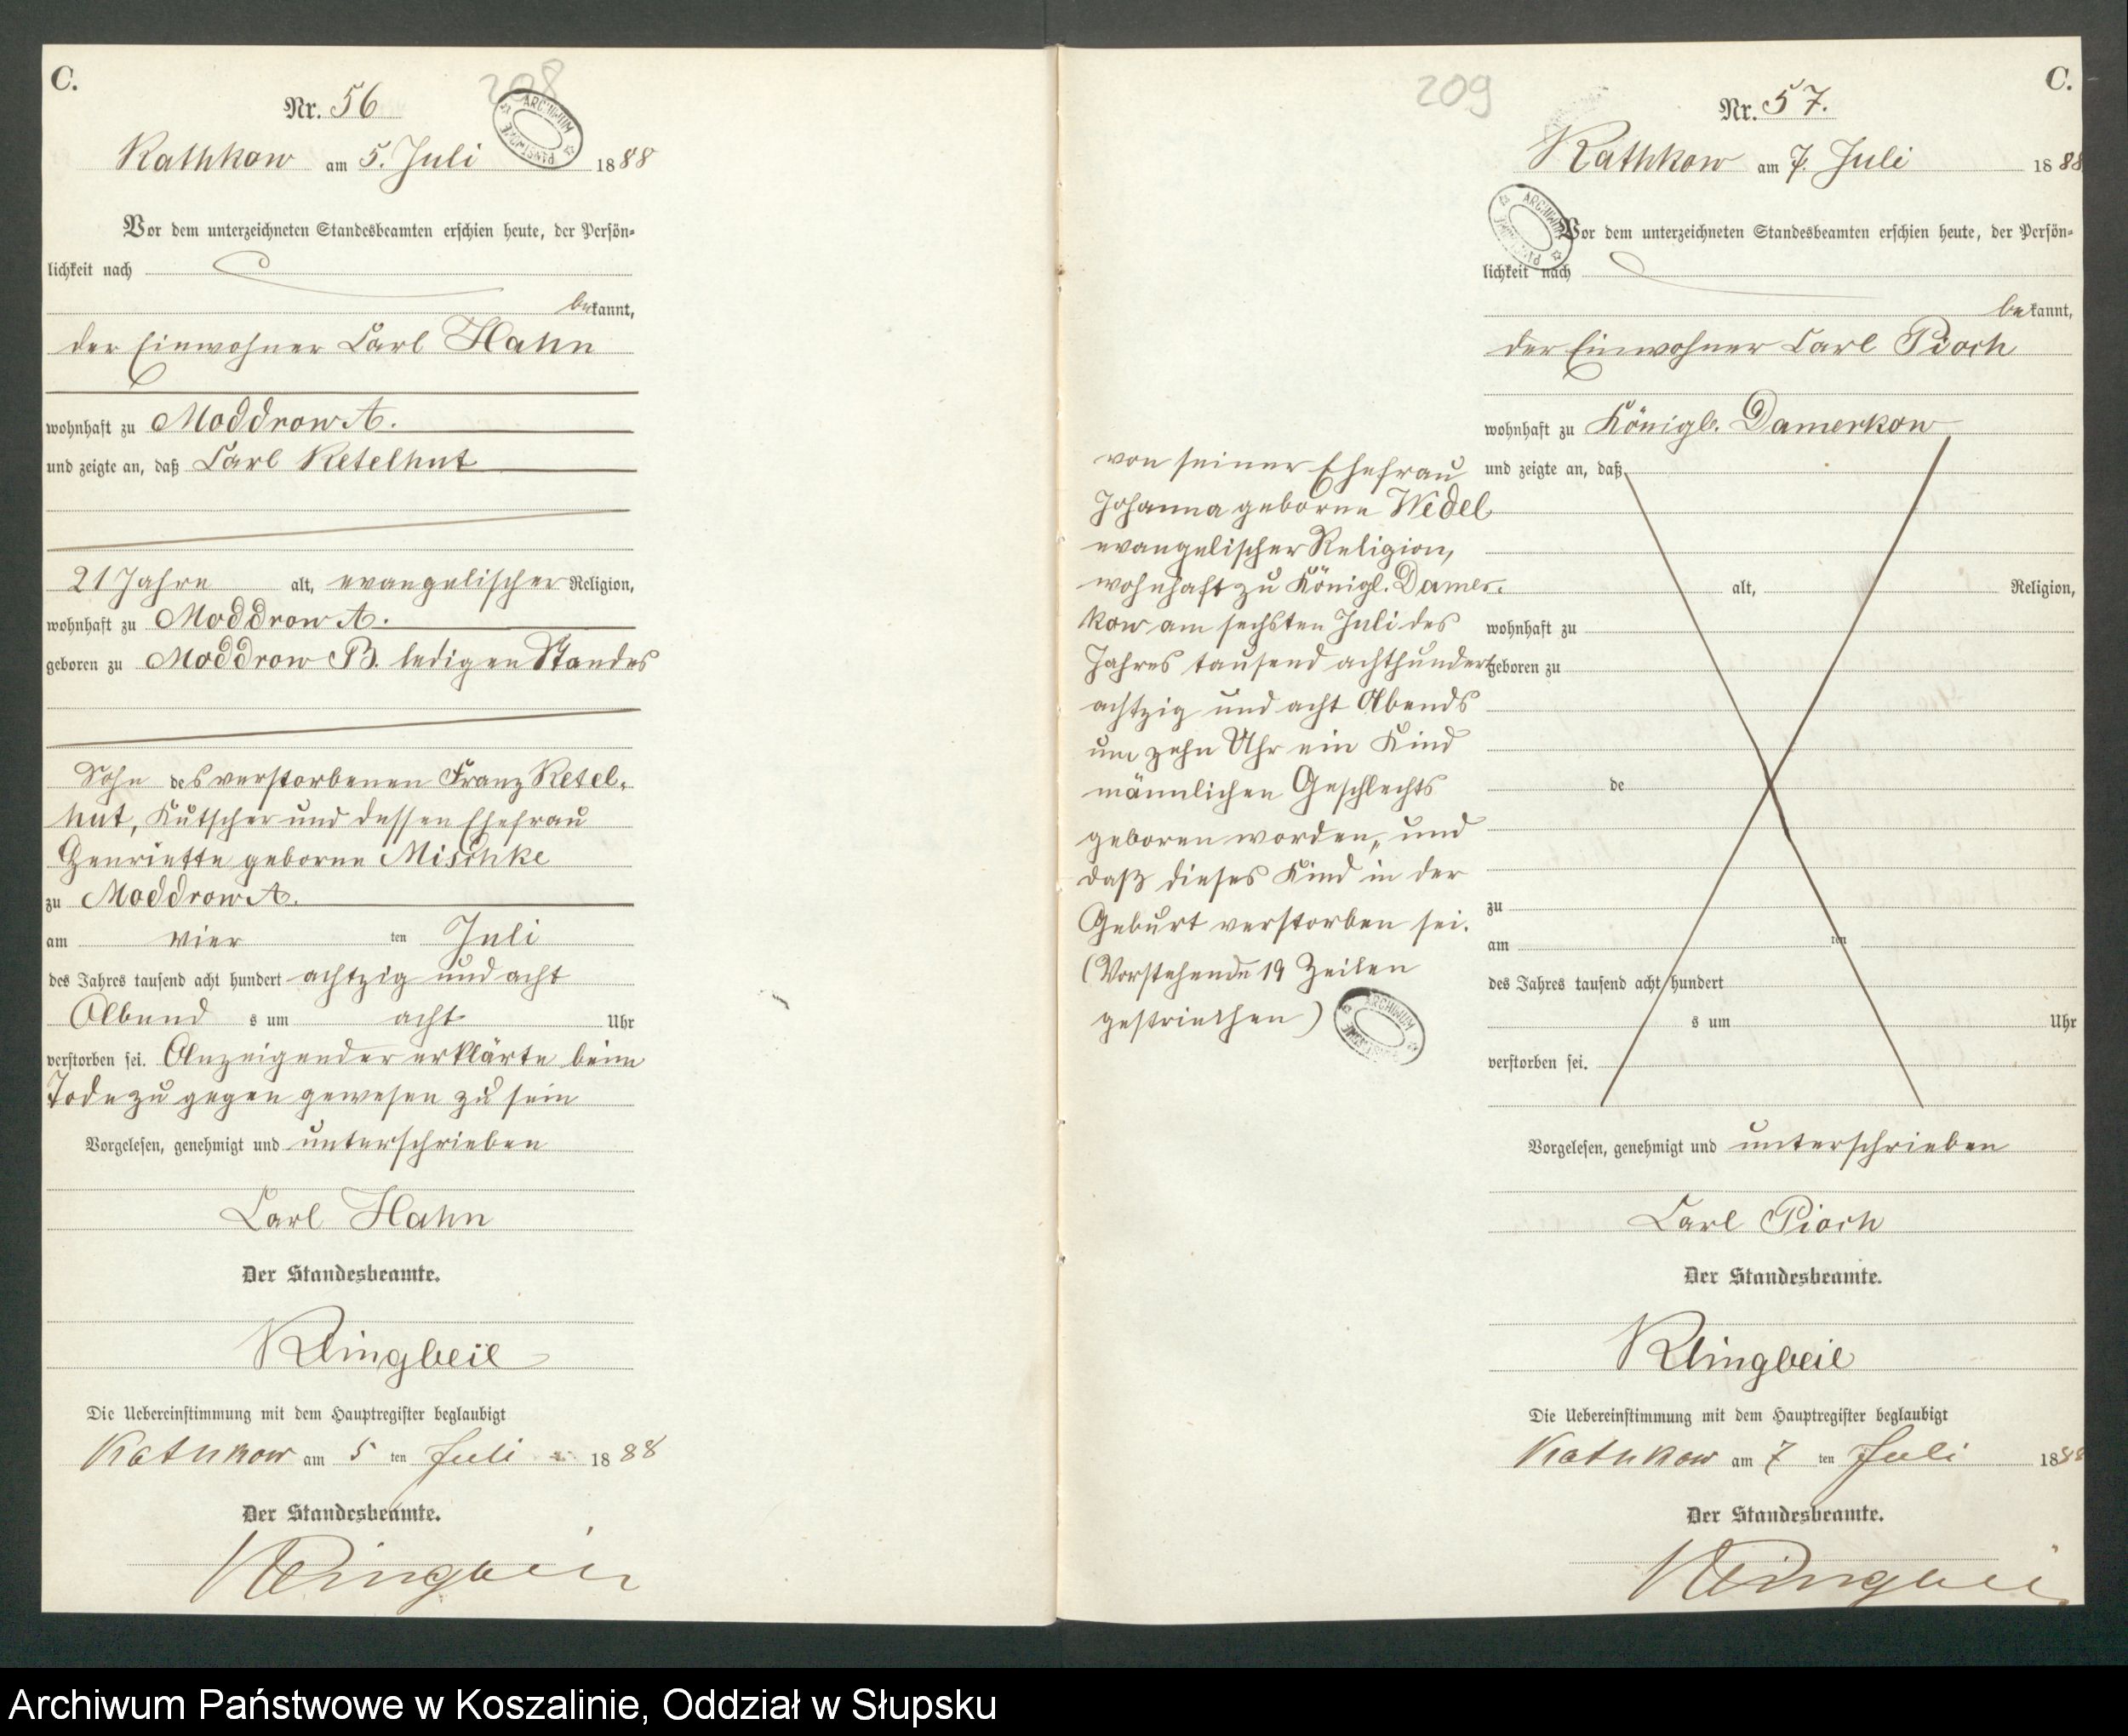 C.
208
Nr. 56
ARCHIWUM PAŃSTWOWE
Rathkow am 5. Juli 1888
Vor dem unterzeichneten Standesbeamten erschien heute, der Persön-
lichkeit nach
bekannt,
der Einwohner Carl Hahn
wohnhaft zu Moddrow A.
und zeigte an, daß Carl Retelhut
21 Jahre alt, evangelischer Religion,
wohnhaft zu Moddrow A.
geboren zu Moddrow B. ledigen Standes
Sohn des verstorbenen Franz Retel-
hut, Kutscher und dessen Ehefrau
Henriette geborne Mischke
zu Moddrow A.
am vier ten Juli
des Jahres tausend acht hundert achtzig und acht
Abend s um acht Uhr
verstorben sei. Anzeigender erklärte beim
Tode zu gegen gewesen zu sein
Vorgelesen, genehmigt und unterschrieben
Carl Hahn
Der Standesbeamte.
Klingbeil
Die Uebereinstimmung mit dem Hauptregister beglaubigt
Rathkow am 5 ten Juli 1888
Der Standesbeamte.
Klingbeil
209
C.
Nr. 57.
Rathkow am 7. Juli 1888
ARCHIWUM PAŃSTWOWE
Vor dem unterzeichneten Standesbeamten erschien heute, der Persön-
lichkeit nach
bekannt,
der Einwohner Carl Pioch
wohnhaft zu Königl. Damerkow
und zeigte an, daß
alt, Religion,
wohnhaft zu
geboren zu
de
zu
am ten
des Jahres tausend acht hundert
s um Uhr
verstorben sei.
von seiner Ehefrau
Johanna geborne Widel
evangelischer Religion,
wohnhaft zu Königl. Damer-
kow am sechsten Juli des
Jahres tausend achthundert
achtzig und acht Abends
um zehn Uhr ein Kind
männlichen Geschlechts
geboren worden, und
daß dieses Kind in der
Geburt verstorben sei.
(Vorstehende 19 Zeilen
gestrichen)
ARCHIWUM PAŃSTWOWE
Vorgelesen, genehmigt und unterschrieben
Carl Pioch
Der Standesbeamte.
Klingbeil
Die Uebereinstimmung mit dem Hauptregister beglaubigt
Rathkow am 7 ten Juli 1888
Der Standesbeamte.
Klingbeil
Archiwum Państwowe w Koszalinie, Oddział w Słupsku